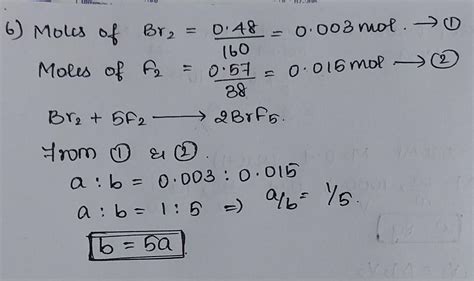 6) Moles of Br₂ = 0.48/160 = 0.003 mol. → ①
Moles of F₂ = 0.57/38 = 0.015 mol → ②
Br₂ + 5F₂ → 2BrF₅.
From ① & ②.
a : b = 0.003 : 0.015
a : b = 1 : 5 ⇒ a/b = 1/5.
b = 5a